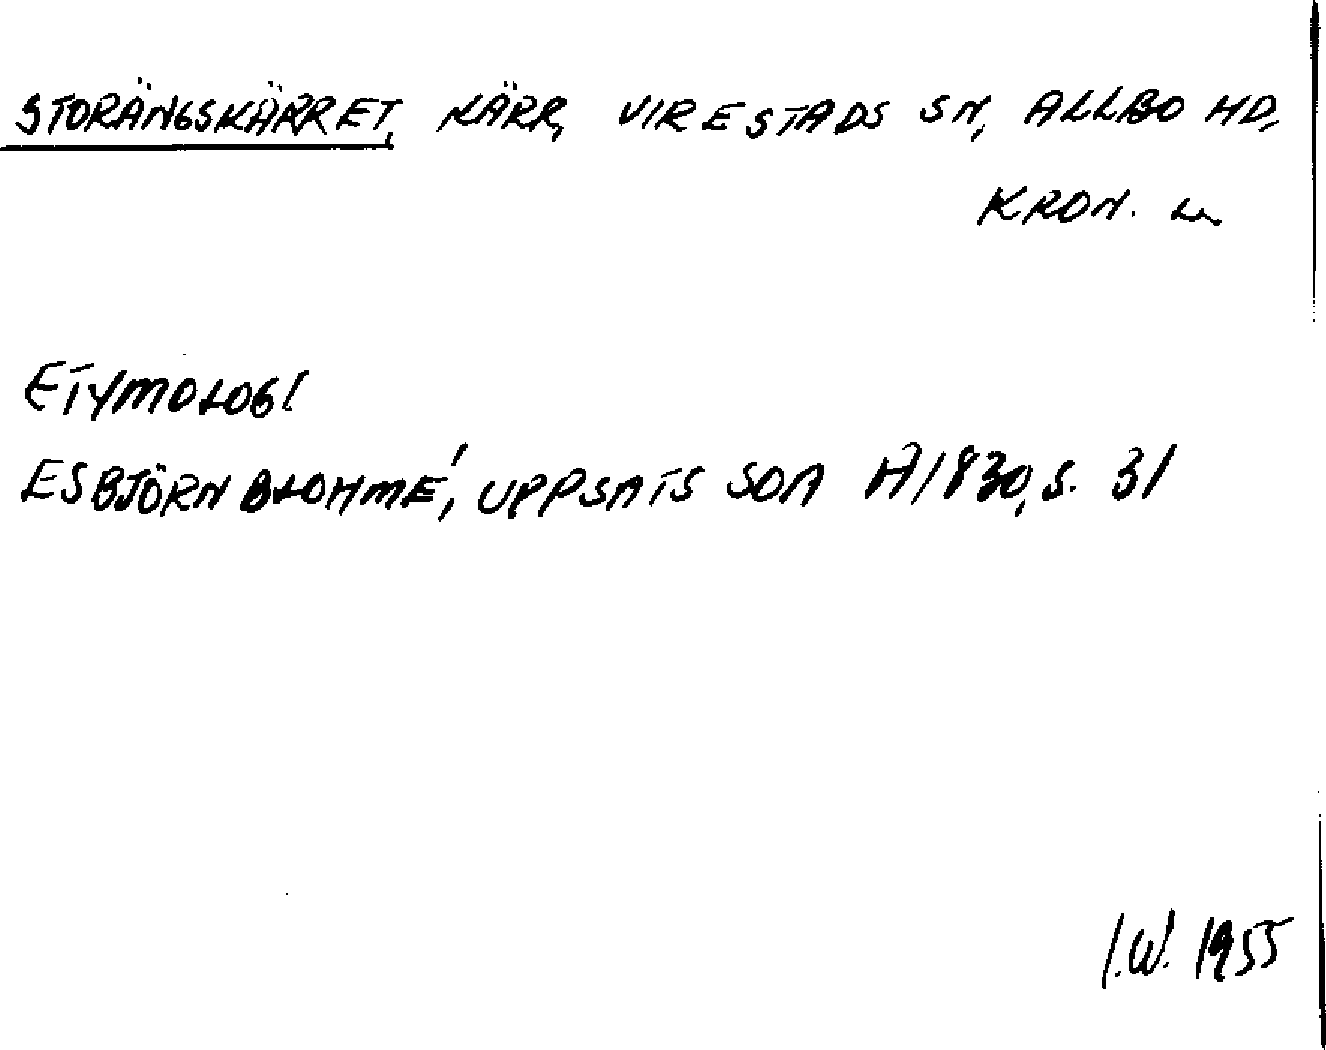 STORÄNGSKÄRRET, KÄRR, VIRESTADS SN, ALLBO HD,
KRON. L.
ETYMOLOGI
ESBJÖRN BLOHMÉ, UPPSATS SOA A1830, S. 31
I.W. 1955